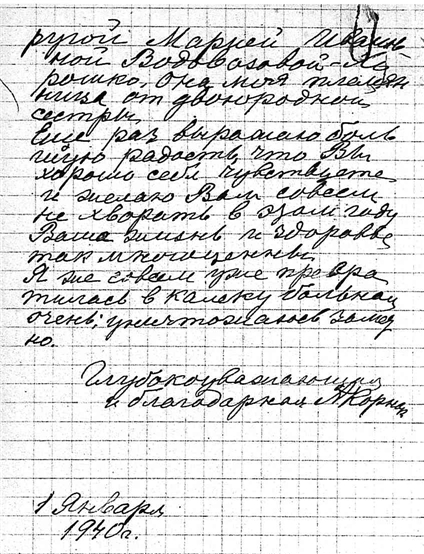 ругой Марией Иванов
ной Водовозовой-Ху
рошко, она моя племян
ница от двоюродной
сестры.
Еще раз выражаю боль
шую радость, что Вы
хорошо себя чувствуете
и желаю Вам совсем
не хворать в этом году
Ваша жизнь и здоровье
так многоценны.
Я же совсем уже превра
тилась в калеку больная
очень; уничтожаюсь замет
но.
Глубокоуважающая
и благодарная
1 Января
1940 г.